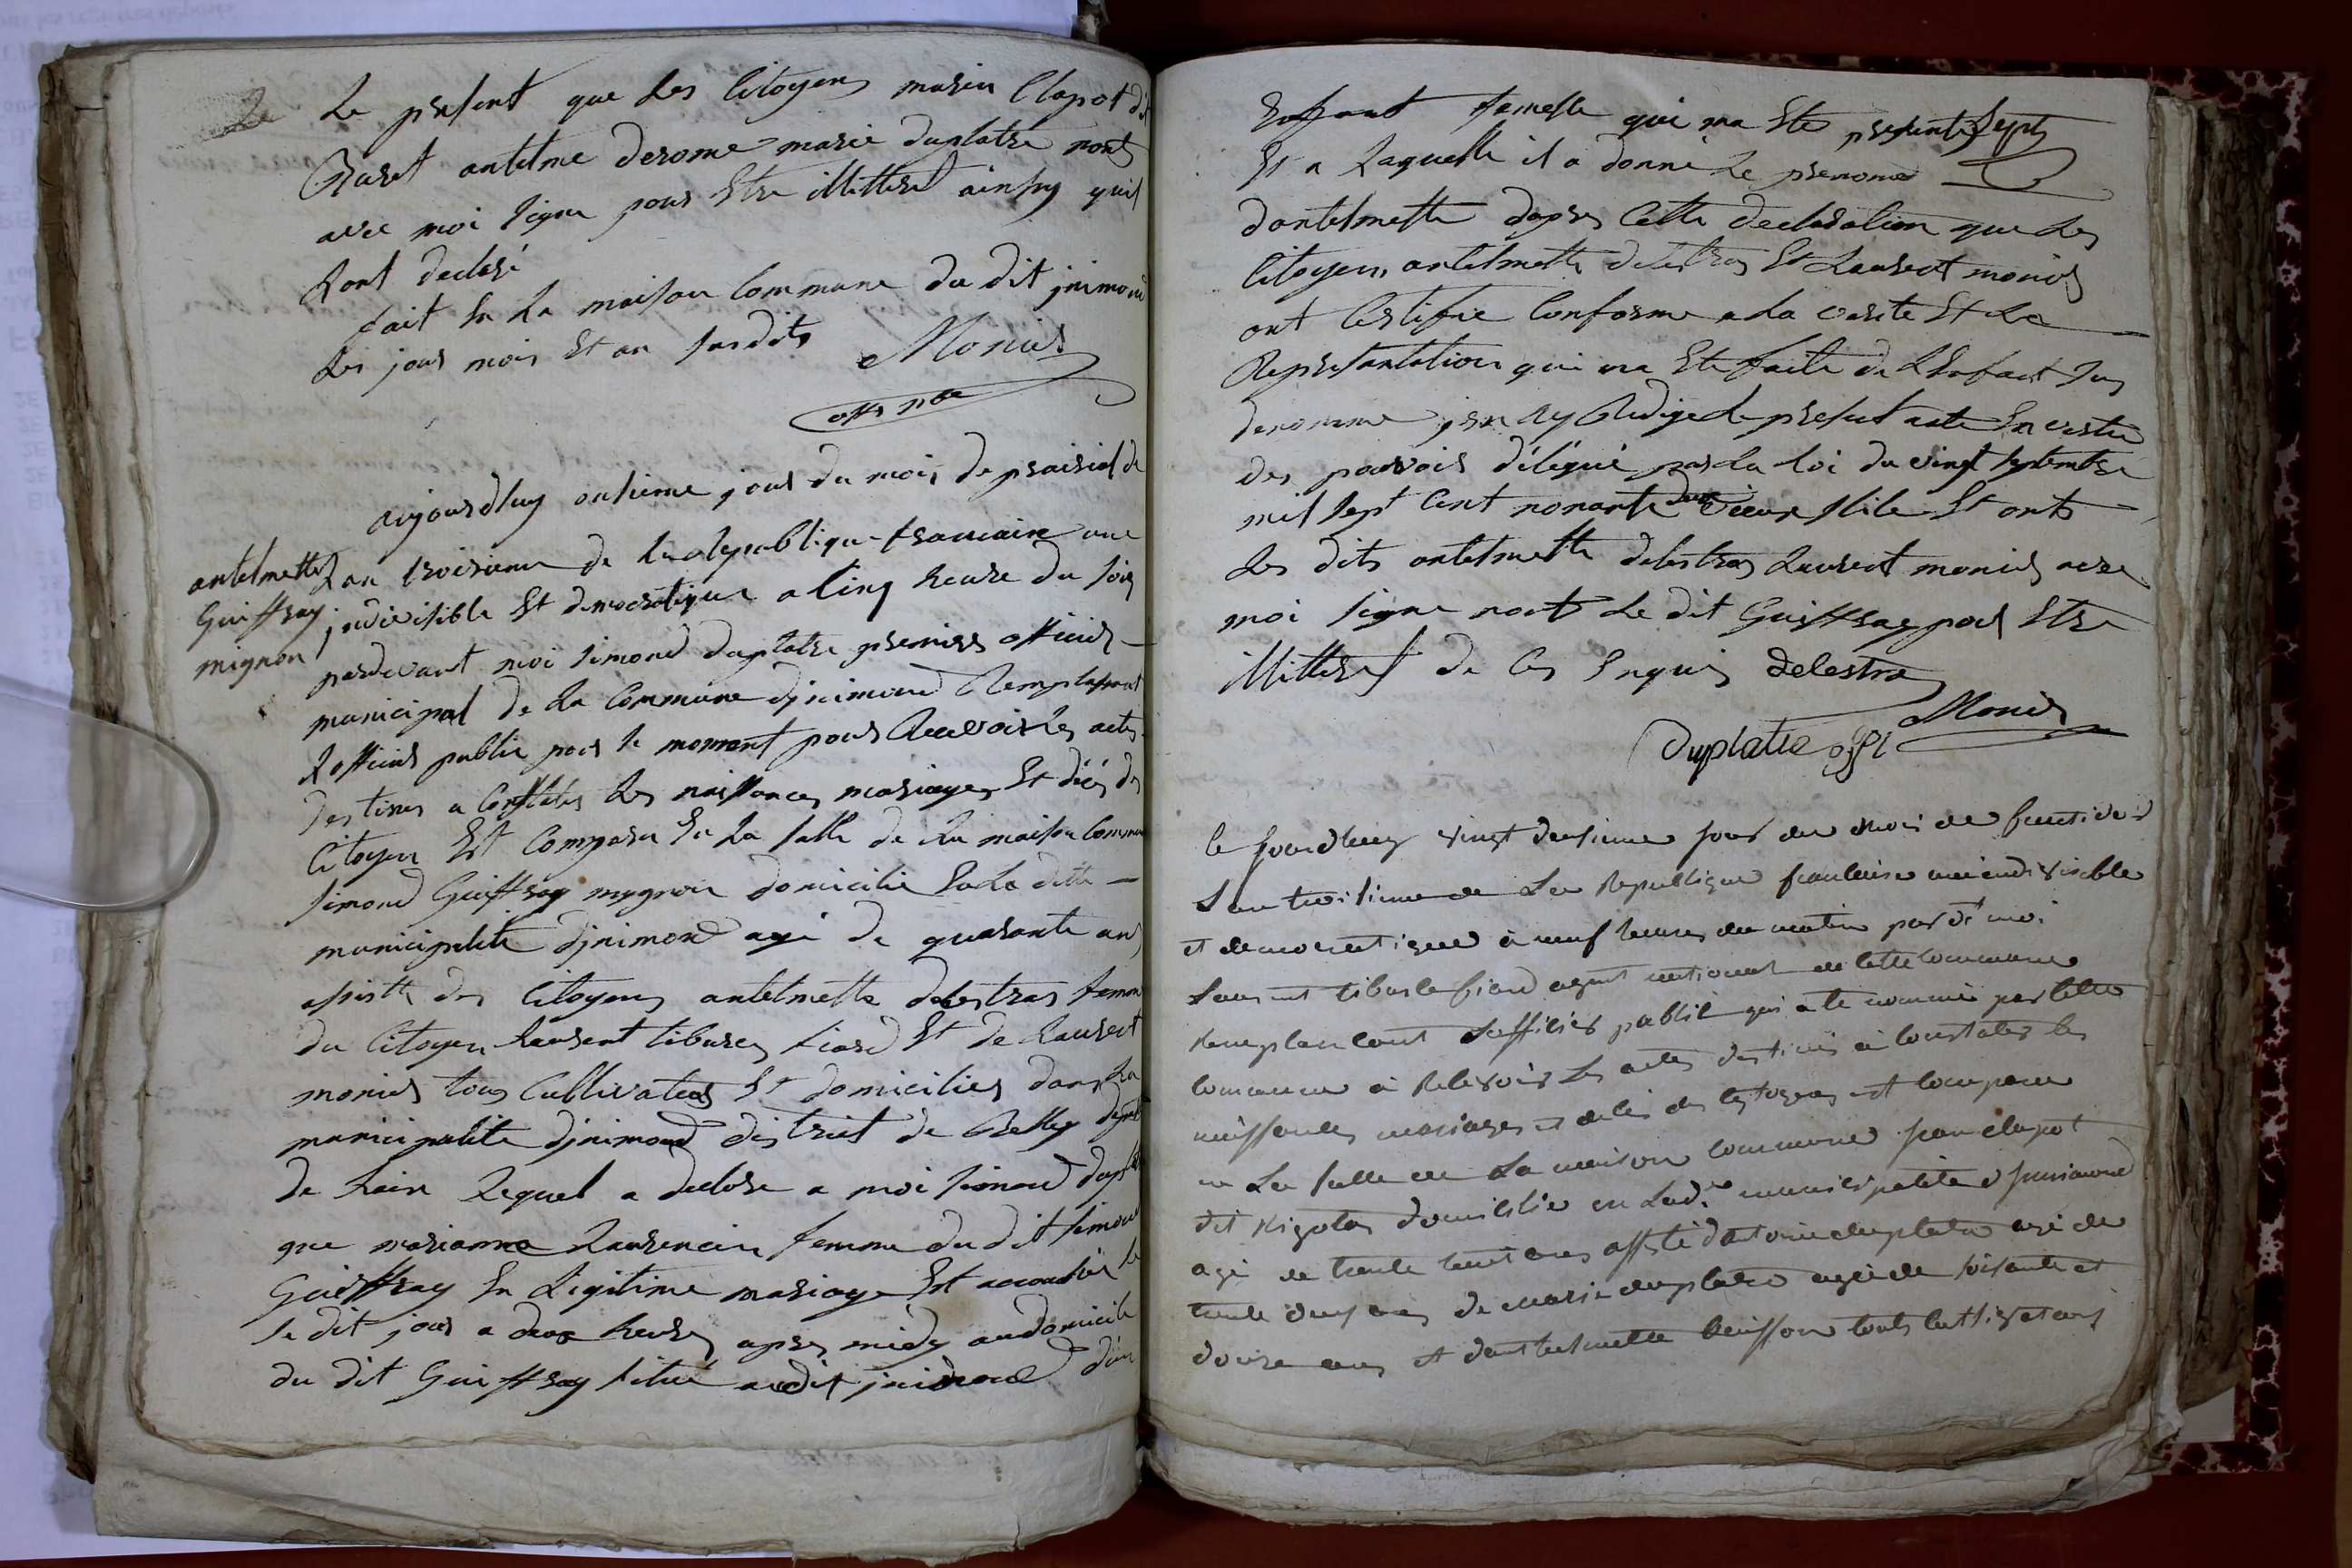 Le present que les Citoyens marin Clapot dit
Buret antelme derome marie duplatre nont
avec moi signe pour Etre illitteré ainsy quil
Lont declaré
fait En La maison Commune du dit jnimond
Les jour mois Et an susdits Monier
offs pbe
aujourdhuy onsieme jour du mois de prairial de
antelmette
Guiffray
mignon
Lan troisieme de la Republique francaise une
jndivisible Et democratique a Cinq heure du soir
pardevant moi simond duplatre premier officier
municipal de La Commune djnimond Remplasent
Lofficier public pour le moment pour Recevoir les actes
destines a Constater Les naissances mariages Et décés des
Citoyen Est Comparu En La salle de La maison Commune
simond Guiffray mygnon domicilie En La ditte
municipalite djnimond agé de quarante ans
assisté des Citoyens antelmette delestras femme
du Citoyen Laurent tiburce fiard Et de Laurent
monier tous Cultivateurs Et domicilies dans La
municipalite djnimond district de Belley depmt
de Lain Lequel a declare a moi simond duplatre
que marianne Laurencin femme du dit simond
Guiffray En Legitime mariage Est accouchée le
se dit jour a deux heures apres midy au domicile
du dit Guiffray situé audit jnimond d'un
Enfant femelle qui ma Ete presente
Et a Laquelle il a donné Le prenome
dantelmette dapres Cette declaration que Les
Citoyens antelmette delestras Et Laurent monier
ont Certifie Conforme a La verite Et La
Representation qui ma Ete faite de LEnfant sus
denomme jen ay Redige Le present acte En vertu
des pouvoir délégué par La loi du vingt septembre
mil sept Cent nonante deux vieux stile Et ont
Les dits antelmette delestras Laurent monier avec
moi signe nont Le dit Guiffray pour Etre
illitteré de Ces Enquis delestras
Monier
Duplatre offi
le jourdhuy vingt deusieme jour du mois de fructidor
Lan troisieme de La Republique francaise une indivisible
et democratique à neuf heures du matin par dt moi
Laurent tiburce fiard agent national de cette commune
Remplacent Lofficier publit qui a te nommé par cette
commune à Relevoir Les actes destinés à Constater les
naissances mariages et décés des citoyens est comparu
en La salle de La maison commune jean clapot
dit Rigolas domicilie en Lad. municipalite djnimond
agé de trente huit ans assisté dantoine duplatre agé de
trente deux ans de marie duplatre agée de soisante et
douse ans et dantelmette buisson touts cultivateurs